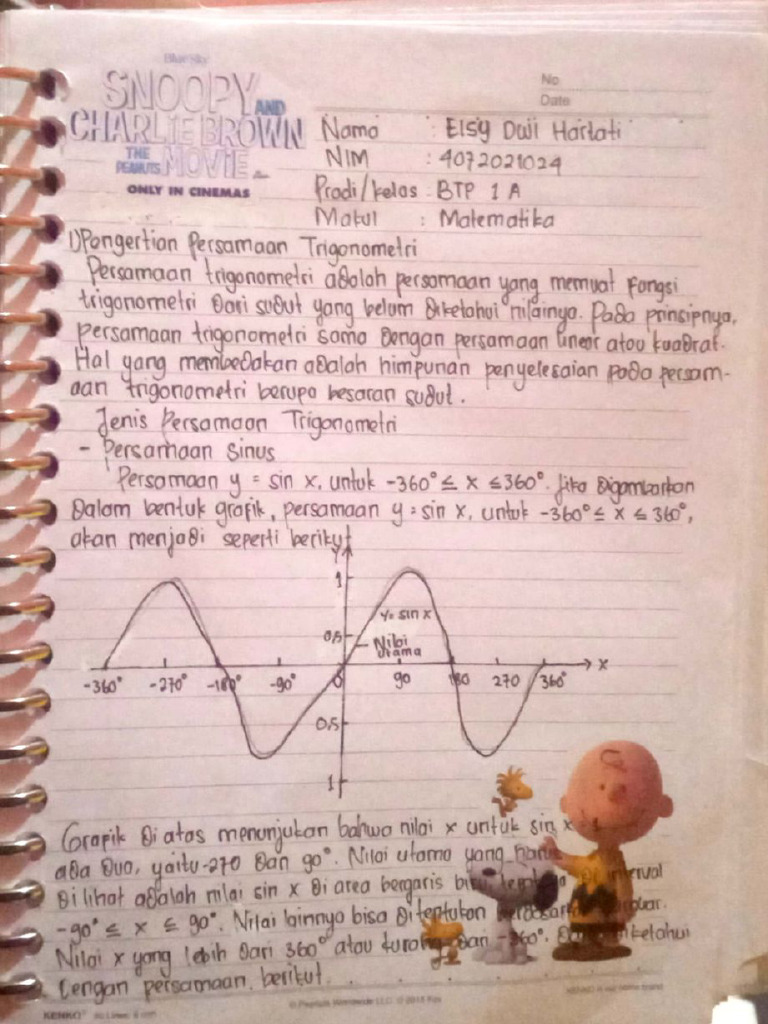 Blue Sky
SNOOPY AND
CHARLIE BROWN
THE PEANUTS MOVIE
ONLY IN CINEMAS
No
Date
Nama : Elsy Dwi Hartati
NIM : 4072021024
Prodi/kelas : BTP 1 A
Matkul : Matematika
1) Pengertian Persamaan Trigonometri
Persamaan trigonometri adalah persamaan yang memuat fungsi
trigonometri dari sudut yang belum diketahui nilainya. Pada prinsipnya,
persamaan trigonometri sama dengan persamaan linear atau kuadrat.
Hal yang membedakan adalah himpunan penyelesaian pada persam-
aan trigonometri berupa besaran sudut.
Jenis Persamaan Trigonometri
- Persamaan Sinus
Persamaan y = sin x, untuk -360° ≤ x ≤ 360°. Jika digambarkan
dalam bentuk grafik, persamaan y = sin x, untuk -360° ≤ x ≤ 360°,
akan menjadi seperti berikut
Y
1
y = sin x
0,5
Nilai
utama
x
-360° -270° -180° -90° 0 90 180 270 360°
0,5
1
Grafik di atas menunjukan bahwa nilai x untuk sin x
ada dua, yaitu -270 dan 90°. Nilai utama yang harus
di lihat adalah nilai sin x di area bergaris biru, di interval
-90° ≤ x ≤ 90°. Nilai lainnya bisa ditentukan
Nilai x yang lebih dari 360° atau kurang dari -360°. diketahui
dengan persamaan berikut.
KENKO
© Peanuts Worldwide LLC. © 2015 Fox